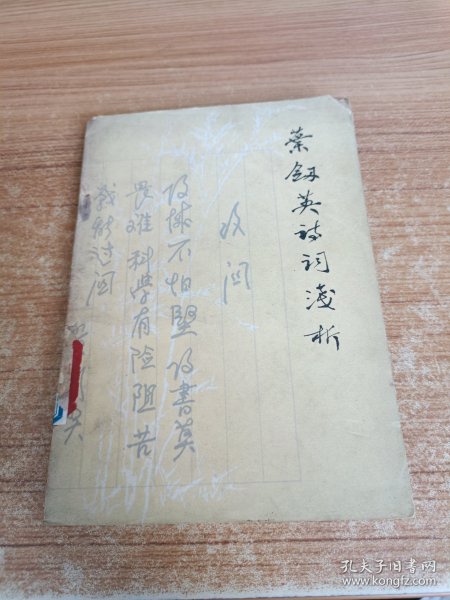 葉釼英诗词淺析
攻関
攻城不怕堅 攻書莫
畏难 科学有险阻 苦
战能过関
英
孔夫子旧书网
www.kongfz.com